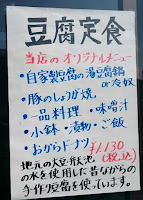 豆腐定食
当店のオリジナルメニュー
・自家製豆腐の湯豆腐鍋
or冷奴
・豚のしょうが焼
・一品料理・味噌汁
・小鉢・漬物・ご飯
・おからドーナツ
¥1130
(税込)
地元の大豆と天池
の水を使用した昔ながらの
手作り豆腐を使っています。